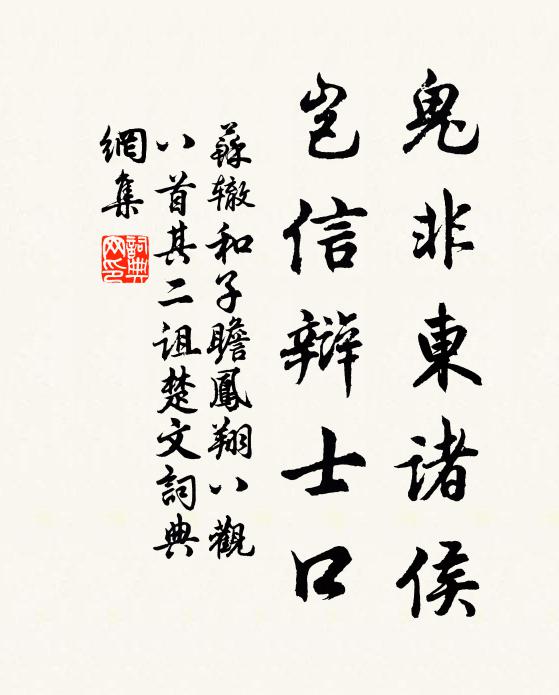 鬼非東諸侯
豈信辯士口
蘇轍和子瞻鳳翔八觀
八首其二詛楚文詞典
網集
詞典
网印